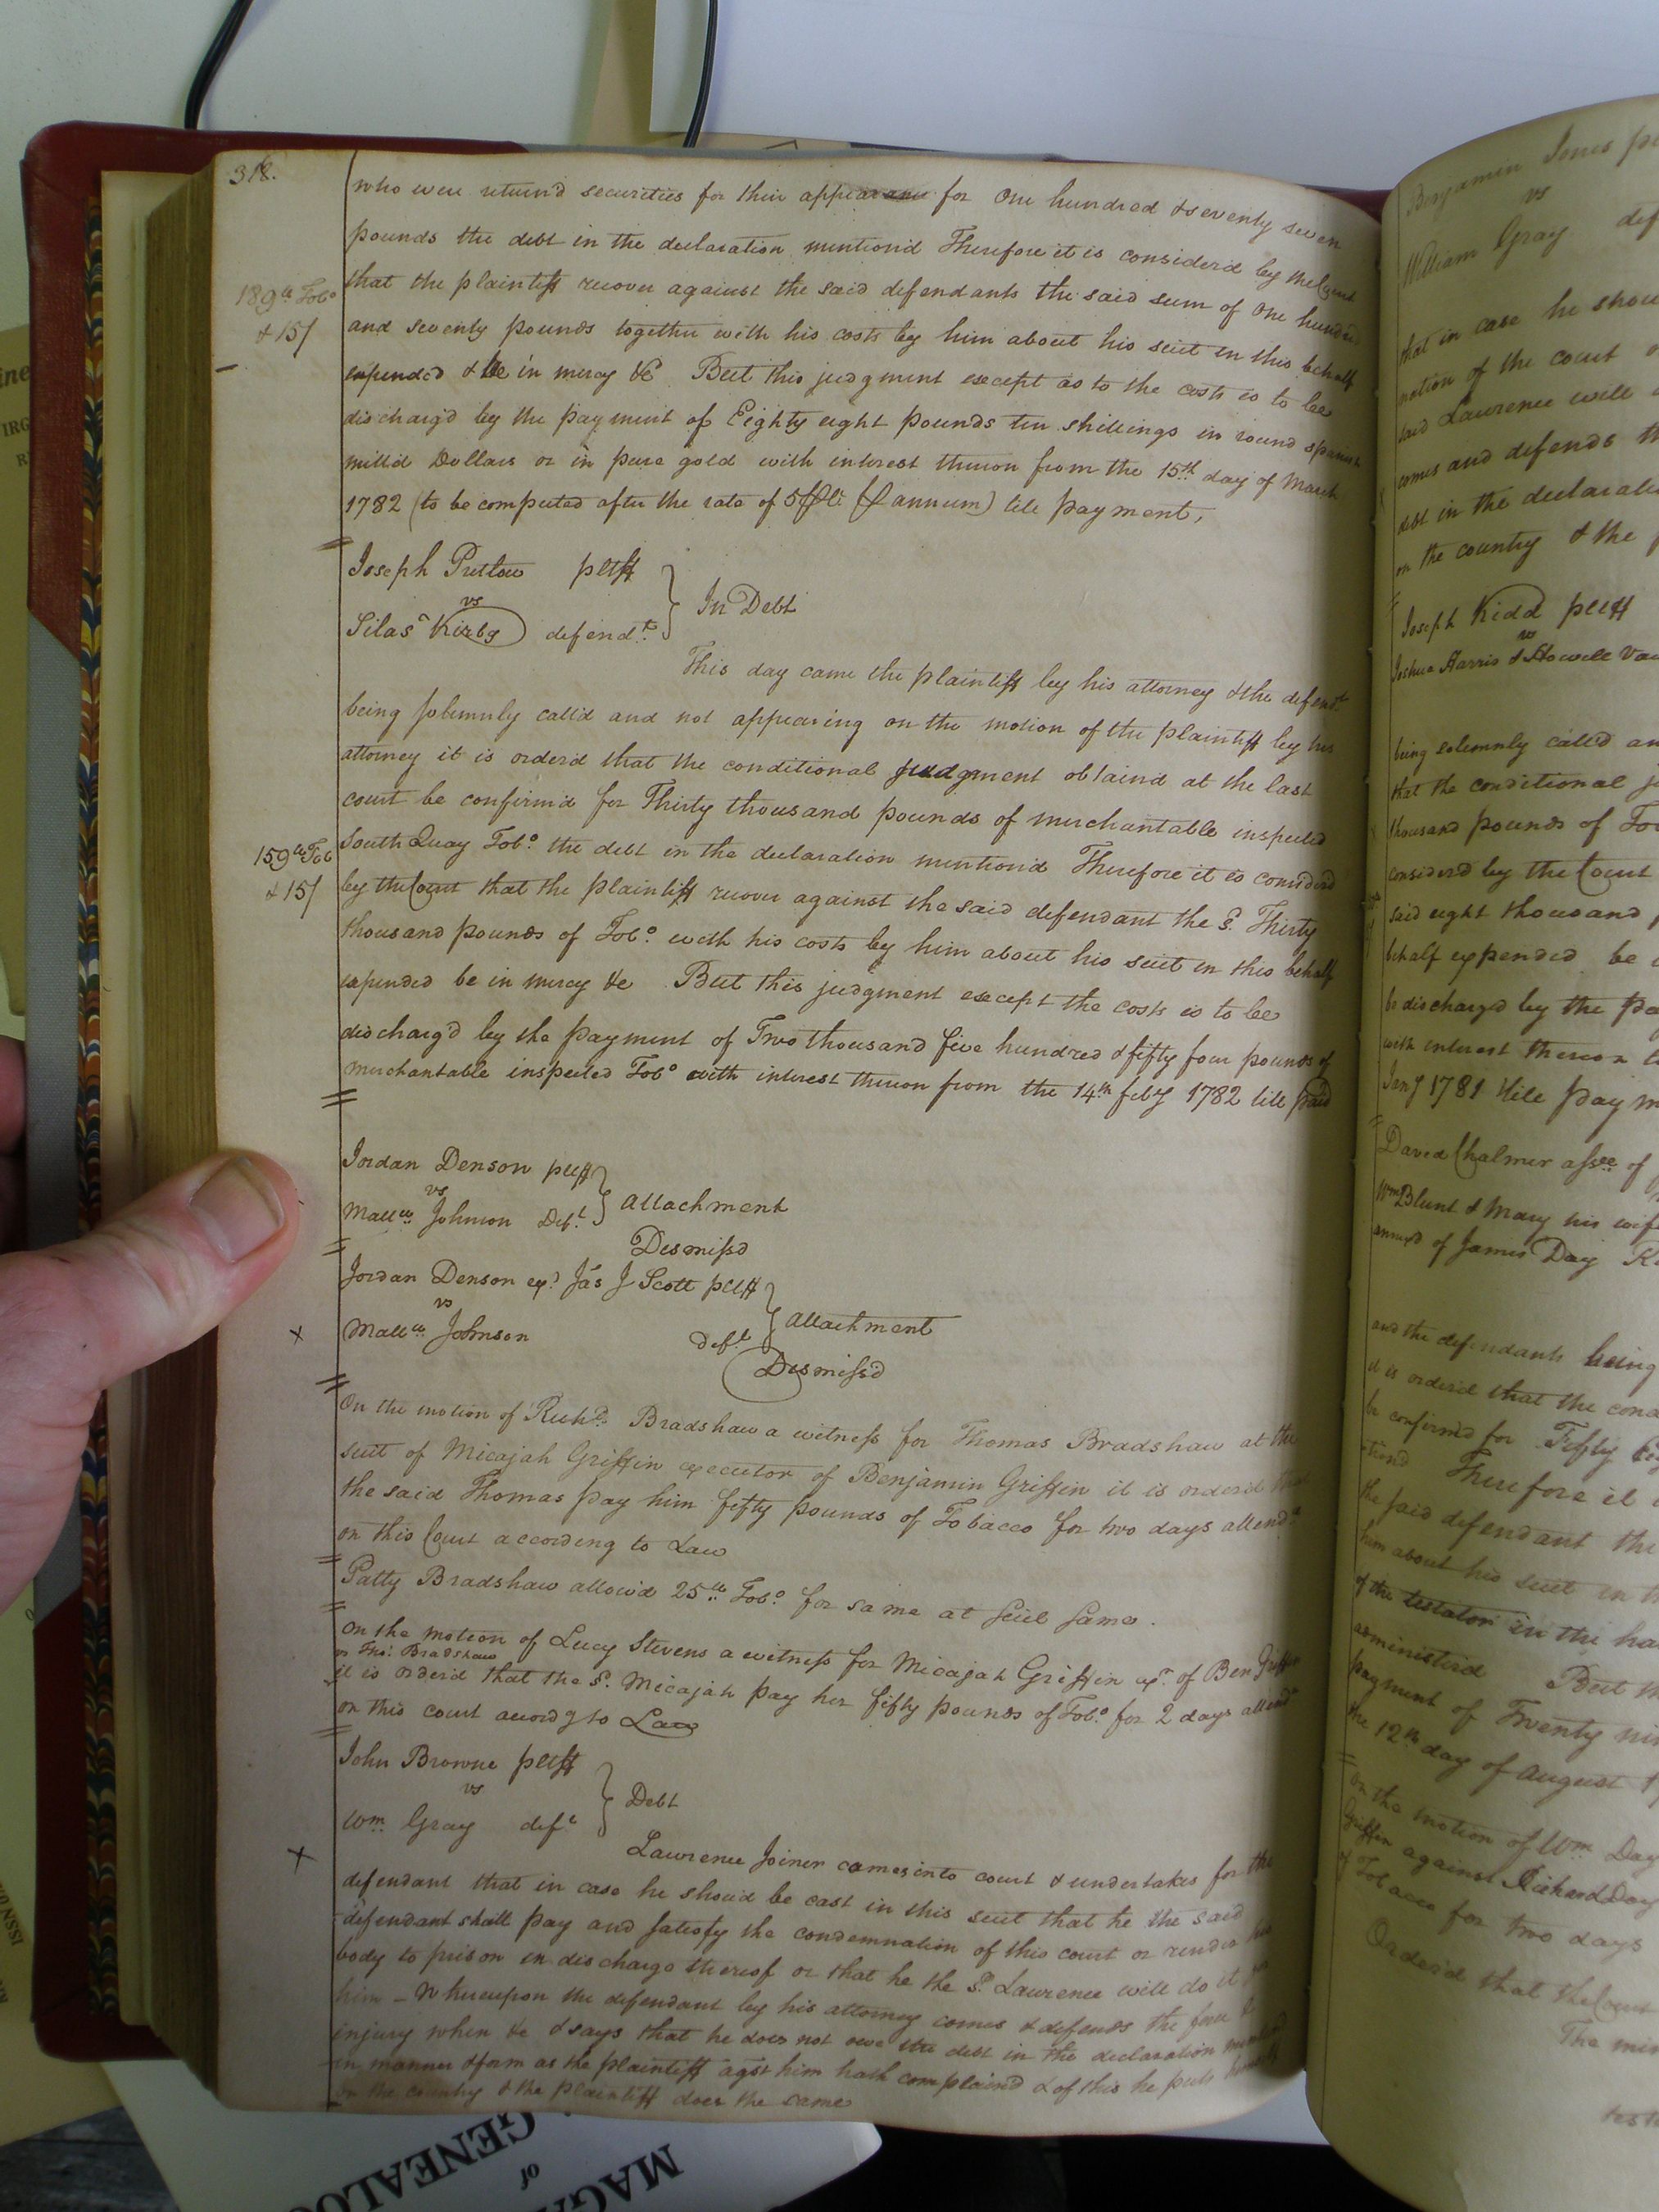 318.
who were return'd securities for their appearance for One hundred & seventy seven
pounds the debt in the declaration mention'd Therefore it is consider'd by the Court
that the plaintiff recover against the said defendants the said sum of One hundred
189 lb Tobo
& 15/
and seventy pounds together with his costs by him about his suit in this behalf
expended & be in mercy &c But this judgment except as to the costs is to be
discharg'd by the payment of Eighty eight pounds ten shillings in round spanish
mill'd Dollars or in pure gold with interest thereon from the 15th day of March
1782 (to be computed after the rate of 5 annum) till payment,
Joseph Pretlow pltff
vs
In Debt
Silas Kirby defendt
This day came the plaintiff by his attorney & the defendt
being solemnly call'd and not appearing on the motion of the plaintiff by his
attorney it is order'd that the conditional judgment obtain'd at the last
court be confirm'd for Thirty thousand pounds of merchantable inspected
South Quay Tobo. the debt in the declaration mention'd Therefore it is consider'd
159 lb Tob
& 15/
by the Court that the plaintiff recover against the said defendant the sd. Thirty
thousand pounds of Tobo. with his costs by him about his suit in this behalf
expended be in mercy &c But this judgment except the costs is to be
discharg'd by the payment of Two thousand five hundred & fifty four pounds of
merchantable inspected Tobo with interest thereon from the 14th feby 1782 till paid
Jordan Denson pltff
vs
attachment
Johnson Deft
Dismiss'd
Jordan Denson Jas J Scott pltff
vs
attachment
Johnson deft
Dismiss'd
On the motion of Richd. Bradshaw a witness for Thomas Bradshaw at the
suit of Micajah Griffin executor of Benjamin Griffin it is order'd that
the said Thomas pay him fifty pounds of Tobacco for two days attendce
on this Court according to Law
Patty Bradshaw allow'd 25 lb Tobo. for same at suit same.
On the motion of Lucy Stevens a witness for Micajah Griffin exr. of Ben Griffin
Thos. Bradshaw
it is order'd that the sd. Micajah pay her fifty pounds of Tobo. for 2 days attendce
on this court accordg to Law
John Browne pltff
vs
Debt
Wm. Gray deft
Lawrence Joiner comes into court & undertakes for the
defendant that in case he should be cast in this suit that he the said
defendant shall pay and satisfy the condemnation of this court or render his
body to prison in discharge thereof or that he the sd. Lawrence will do it for
him - Whereupon the defendant by his attorney comes & defends the force &
injury when &c & says that he does not owe the debt in the declaration mention'd
in manner & form as the plaintiff agst him hath complain'd & of this he puts himself
on the country & the plaintiff does the same
Benjamin Jones
vs
William Gray def
that in case he shou
of the court
said Lawrence will
comes and defends th
debt in the declarati
on the country & the
Joseph Kidd pltff
vs
Joshua Harris & Howell Va
being solemnly call'd an
that the conditional
thousand pounds of To
consider'd by the Court
said eight thousand
behalf expended be
be discharg'd by the pa
with interest thereon
Jany 1781 till paym
David Chalmer assee of
Wm Blunt & Mary his wife
of James Day
and the defendants being
it is order'd that the con
be confirm'd for Fifty
Therefore it
the said defendant the
him about his suit in
of the testator in the ha
administer'd But
payment of Twenty ni
the 12th day of August
On the motion of Wm Day
Griffin against Richard Day
of Tobacco for two days
Order'd that the Court
The min
MAGA
of
GENEALO